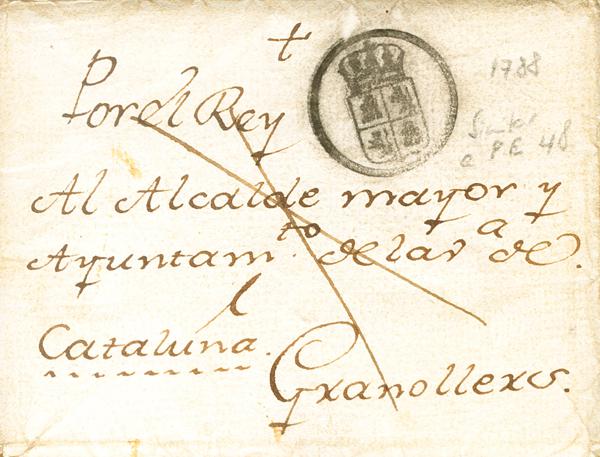 †
Por el Rey
1788
Al Alcalde mayor y
Ayuntam.to de la v.a de
Cataluna.
Granollers.
P.E 48